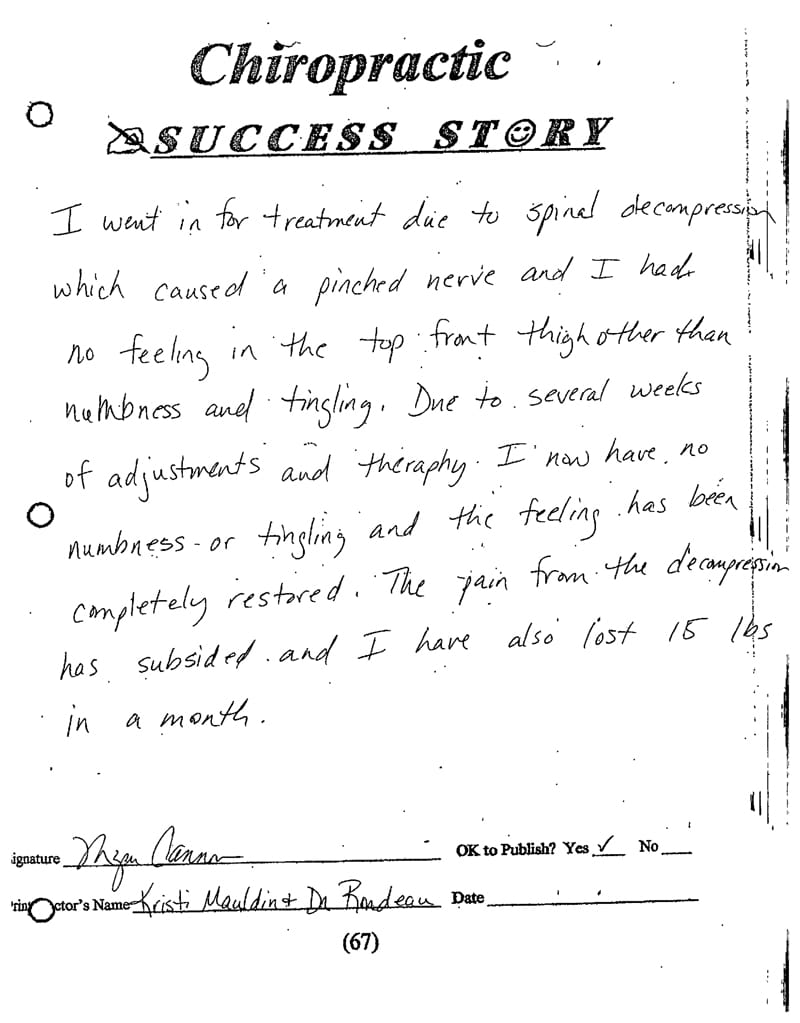 Chiropractic
SUCCESS STORY
I went in for treatment due to spinal decompression
which caused a pinched nerve and I had
no feeling in the top front thigh other than
numbness and tingling. Due to several weeks
of adjustments and theraphy. I now have no
numbness or tingling and the feeling has been
completely restored. The pain from the decompression
has subsided and I have also lost 15 lbs
in a month.
ignature OK to Publish? Yes ✓ No
rin ctor's Name Kristi Mauldin + Dr Rondeau Date
(67)